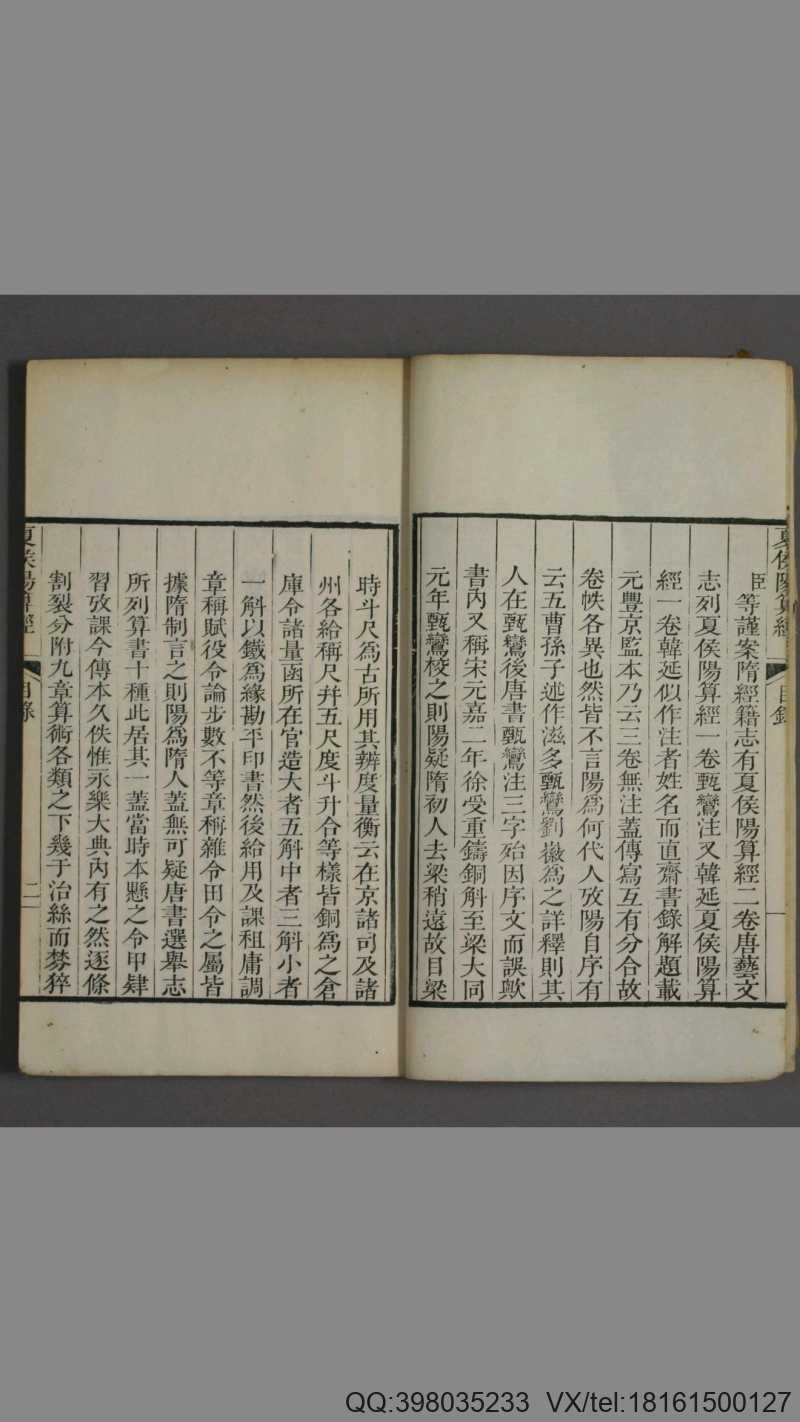 夏侯陽算經
目錄
一
臣等謹案隋經籍志有夏侯陽算經二卷唐藝文
志列夏侯陽算經一卷甄鸞注又韓延夏侯陽算
經一卷韓延似作注者姓名而直齋書錄解題載
元豐京監本乃云三卷無注蓋傳寫互有分合故
卷帙各異也然皆不言陽爲何代人攷陽自序有
云五曹孫子述作滋多甄鸞劉徽爲之詳釋則其
人在甄鸞後唐書甄鸞注三字殆因序文而誤歟
書內又稱宋元嘉二年徐受重鑄銅斛至梁大同
元年甄鸞校之則陽疑隋初人去梁稍遠故目梁
時斗尺爲古所用其辨度量衡云在京諸司及諸
州各給稱尺幷五尺度斗升合等樣皆銅爲之倉
庫令諸量函所在官造大者五斛中者三斛小者
一斛以鐵爲緣勘平印書然後給用及課租庸調
章稱賦役令論步數不等章稱雜令田令之屬皆
據隋制言之則陽爲隋人蓋無可疑唐書選舉志
所列算書十種此居其一蓋當時本懸之令甲肄
習攷課今傳本久佚惟永樂大典內有之然逐條
割裂分附九章算術各類之下幾于治絲而棼猝
夏侯陽算經
目錄
二
QQ:398035233 VX/tel:18161500127